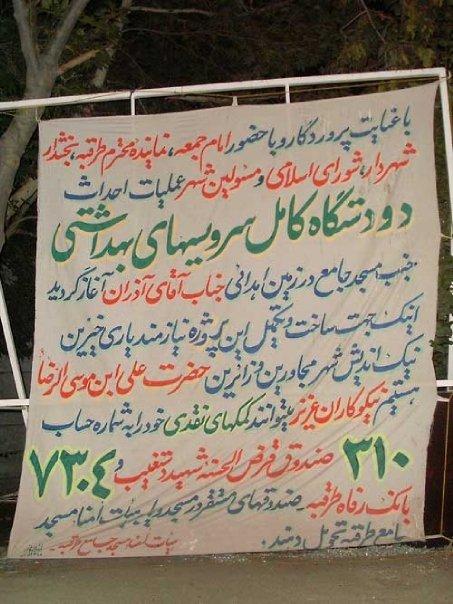 با عنایت پروردگار و با حضور امام جمعه، نماینده محترم طرقبه، بخشدار
شهردار، شورای اسلامی و مسئولین شهر عملیات احداث
دو دستگاه کامل سرویسهای بهداشتی
جنب مسجد جامع در زمین اهدائی جناب آقای آذران آغاز گردید
اینک جهت ساخت و تکمیل این پروژه نیازمند یاری خیرین
نیک اندیش شهر مجاورین و زائرین حضرت علی ابن موسی الرضا
هستیم نیکوکاران عزیز میتوانند کمکهای نقدی خود را به شماره حساب
۳۱۰ صندوق قرض الحسنه شهید دستغیب و ۷۳۰۴
بانک رفاه طرقبه ـ صندوقهای مستقر در مسجد و یا هیئت امنا مسجد
جامع طرقبه تحویل دهند.
هیئت امنا مسجد جامع طرقبه